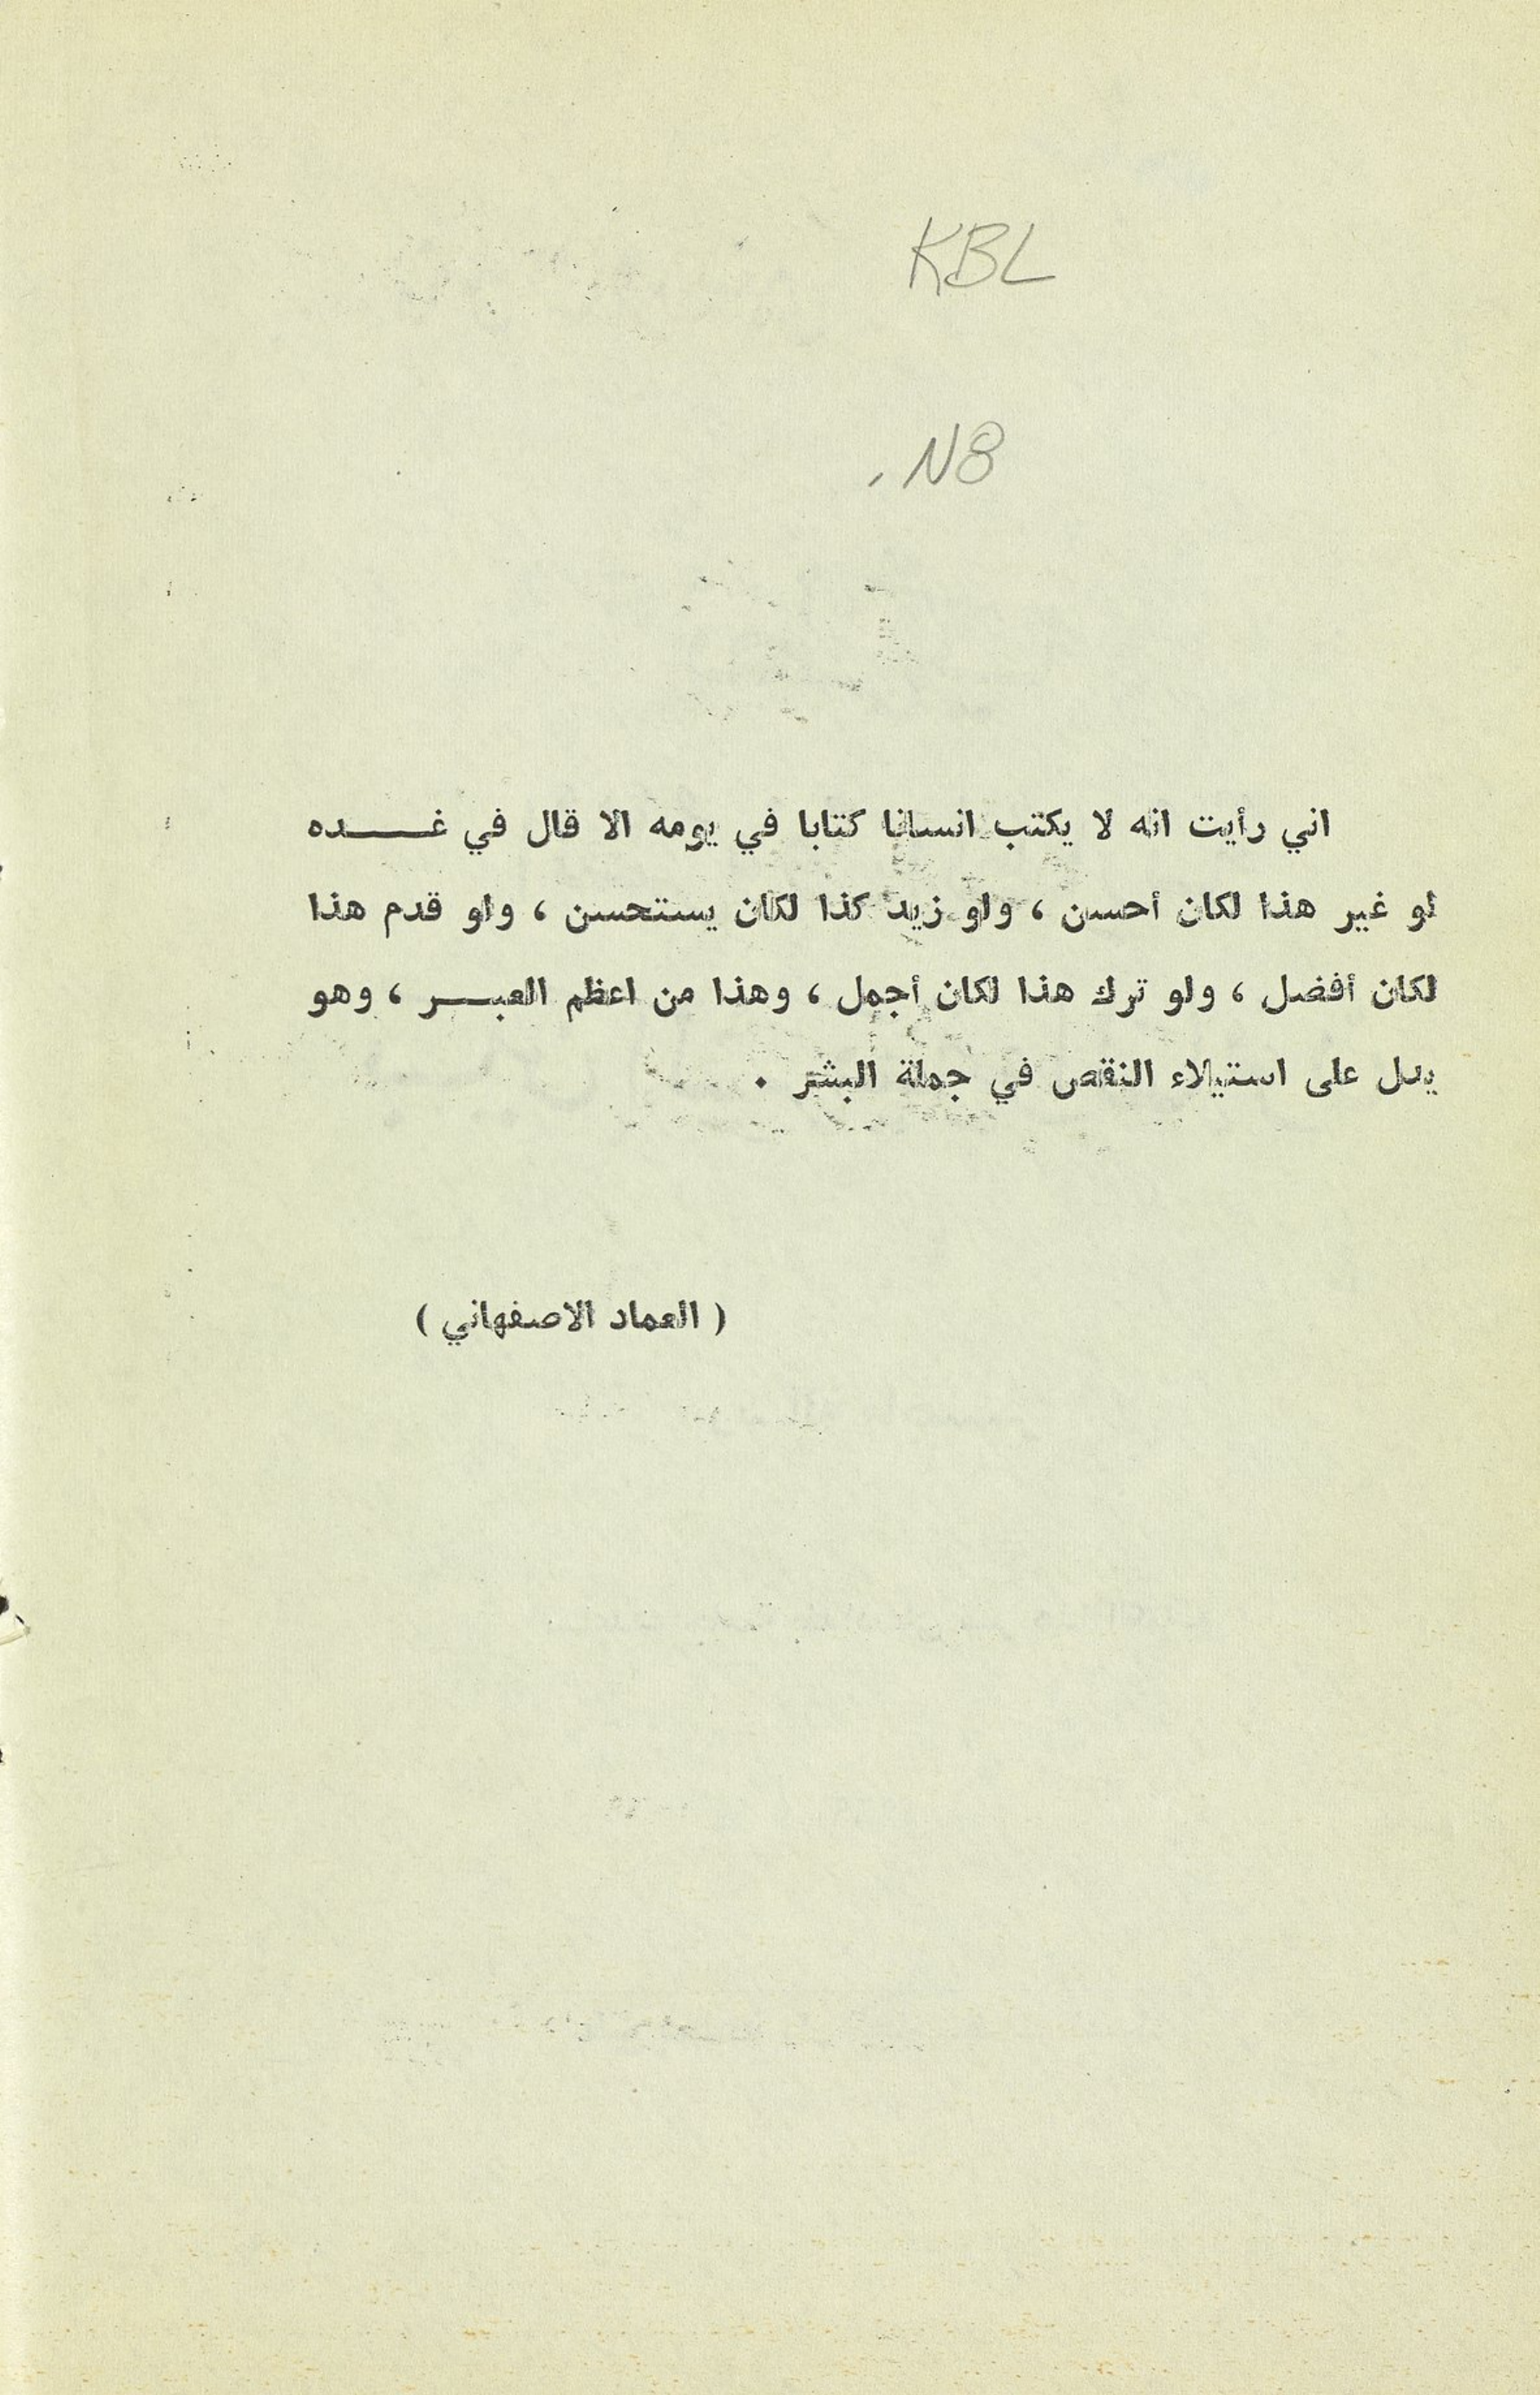 KBL
.N8
اني رأيت انه لا يكتب انسانا كتابا في يومه الا قال في غـــــده
لو غير هذا لكان أحسن ، ولو زيد كذا لكان يستحسن ، ولو قدم هذا
لكان أفضل ، ولو ترك هذا لكان أجمل ، وهذا من اعظم العبـــر ، وهو
يدل على استيلاء النقص في جملة البشر .
( العماد الاصفهاني )